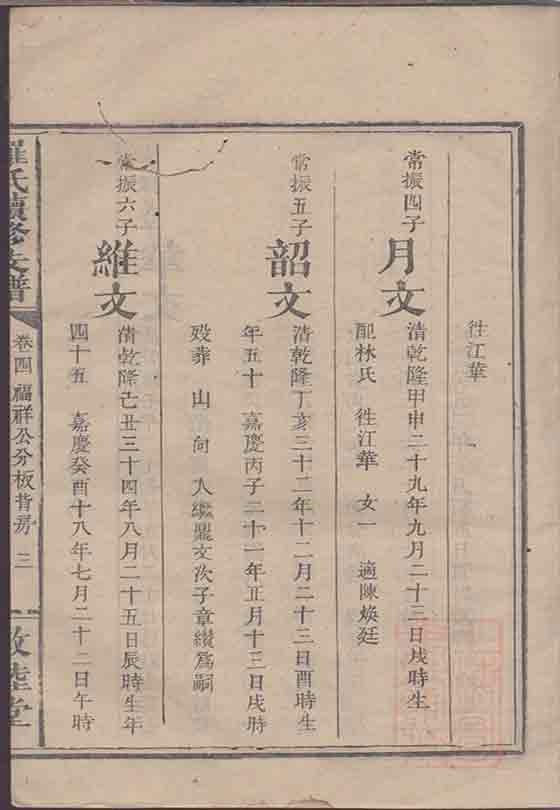 徃江華
常振四子
月文
清乾隆甲申二十九年九月二十三日戌時生
配林氏 徃江華 女一 適陳煥廷
常振五子
韶文
清乾隆丁亥三十二年十二月二十三日酉時生
年五十 嘉慶丙子二十一年正月十三日戌時
歿葬 山 向 人繼龗文次子章纘爲嗣
常振六子
維文
清乾隆己丑三十四年八月二十五日辰時生年
四十五 嘉慶癸酉十八年七月二十二日午時
羅氏續修支譜
卷四 福祥公分板背房 三
敦睦堂